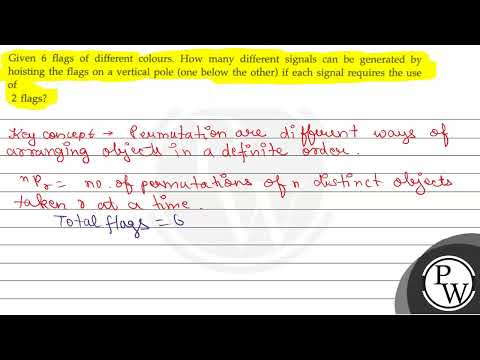 Given 6 flags of different colours. How many different signals can be generated by
hoisting the flags on a vertical pole (one below the other) if each signal requires the use
of
2 flags?
Key concept → Permutation are different ways of
arranging objects in a definite order.
ⁿPᵣ = no. of permutations of n distinct objects
taken r at a time.
Total flags = 6
P
W